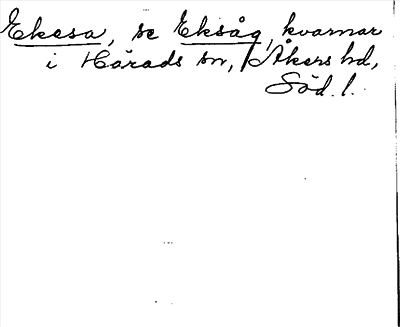 Ekesa, se Eksåg, kvarnar
i Härads sn, Åkers hd,
Söd. l.